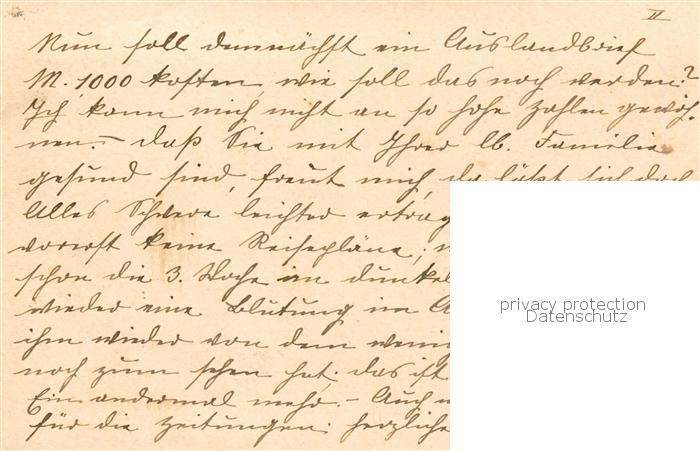 II
Nun soll demnächst ein Auslandbrief
M. 1000 kosten, wie soll das noch werden?
Ich kann mich nicht an so hohe Zahlen gewöh-
nen. – Daß Sie mit Ihrer lb. Familie
gesund sind, freut mich, da läßt sich doch
Alles Schwere leichter ertrag
vorerst keine Reisepläne;
schon die 3. Woche im dunkel
wieder eine Blutung im A
ihm wieder von dem weni
noch zum sehen hat; das ist
Ein andermal mehr. – Auch
für die Zeitungen herzliche
privacy protection
Datenschutz